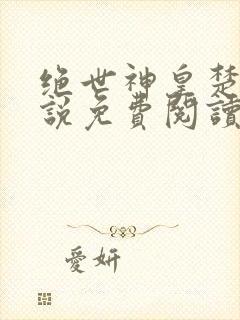 绝世神皇楚
說免費閱讀
愛妍